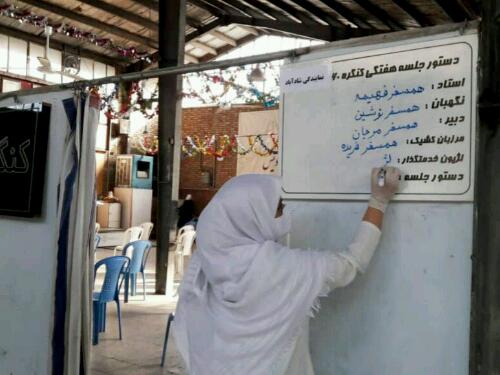 دستور جلسه هفتگی کنگره ۶۰
نمایندگی شادآباد
استاد : همسفر فهیمه
نگهبان : همسفر نوشین
دبیر : همسفر مرجان
مرزبان کشیک : همسفر فریده
لژیون خدمتگذار : لژ
دستور جلسه :
کنگره